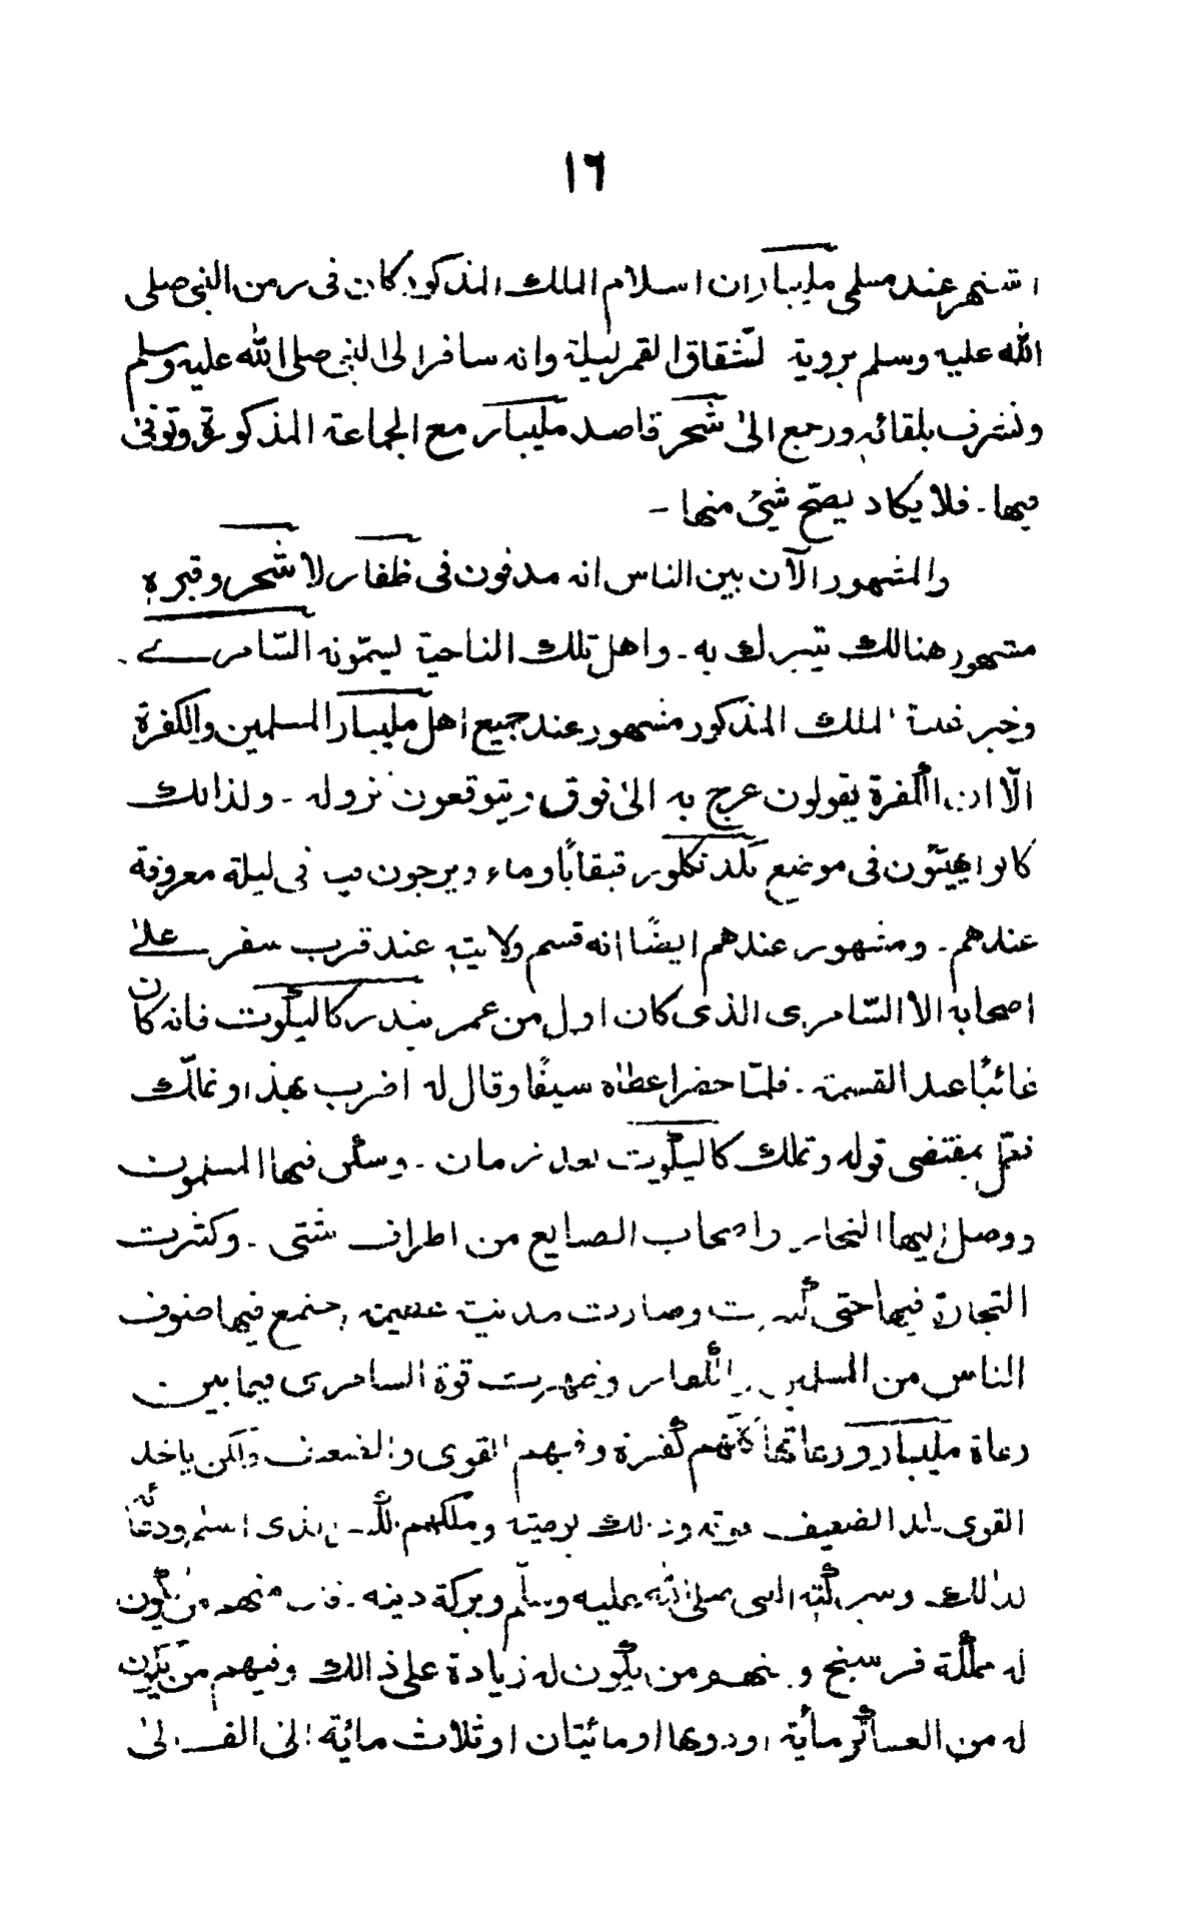 ١٦
اشتهر عند مسلمى مليبار ان اسلام الملك المذكور كان فى زمن النبى صلى
الله عليه وسلم بروية لنشقاق القمر ليلة وانه سافر الى النبى صلى الله عليه وسلم
وتشرف بلقائه ورجع الى شحر قاصد مليبار مع الجماعة المذكورة وتوفى
فيها ۔ فلا يكاد يصحّ شئ منها ۔
والمشهور الآن بين الناس انه مدفون فى ظفار لا شحر وقبره
مشهور هنالك يتبرك به ۔ واهل تلك الناحية يسمّونه السّامرے ۔
وخبر غيبة الملك المذكور مشهور عند جميع اهل مليبار المسلمين والكفرة
الّا ان الكفرة يقولون عرج به الى فوق ويتوقعون نزوله ۔ ولذالك
كانوا يهيئون فى موضع كلدنكلور قبقابًا وماء ويرجون فيه فى ليلة معروفة
عندهم ۔ ومشهور عندهم ايضًا انه قسم ولايته عند قرب سفر علے
اصحابه الا السّامرى الذى كان اول من عمر بندر كاليكوت فانه كان
غائبًا عند القسمة ۔ فلمّا حضر اعطاه سيفًا وقال له اضرب بهذا وتملّك
فعمل بمقتضى قوله وتملك كاليكوت بعد زمان ۔ وسكن فيها المسلمون
ووصل اليها التجار واصحاب الصنايع من اطراف شتى ۔ وكثرت
التجارة فيها حتى كبرت وصاردت مدنية عظيمة واجتمع فيها صنوف
الناس من المسلمين والكفار وظهرت قوة السامرى فيما بين
رعاة مليبار ورعاتها كلهم كفرة وفيهم القوى والضعيف ولكن ياخذ
القوى بلد الضعيف وذلك بوصية وملكهم الذى اسلم ودعائه
لذلك وببركة النبى صلى الله عليه وسلم وبركة دينه ۔ منهم من يكون
له مملكة فرسخ ومنهم من يكون له زيادة على ذالك وفيهم من يكون
له من العساكر مأية اودوها او مائيتان او ثلاث مائية الى الف الى